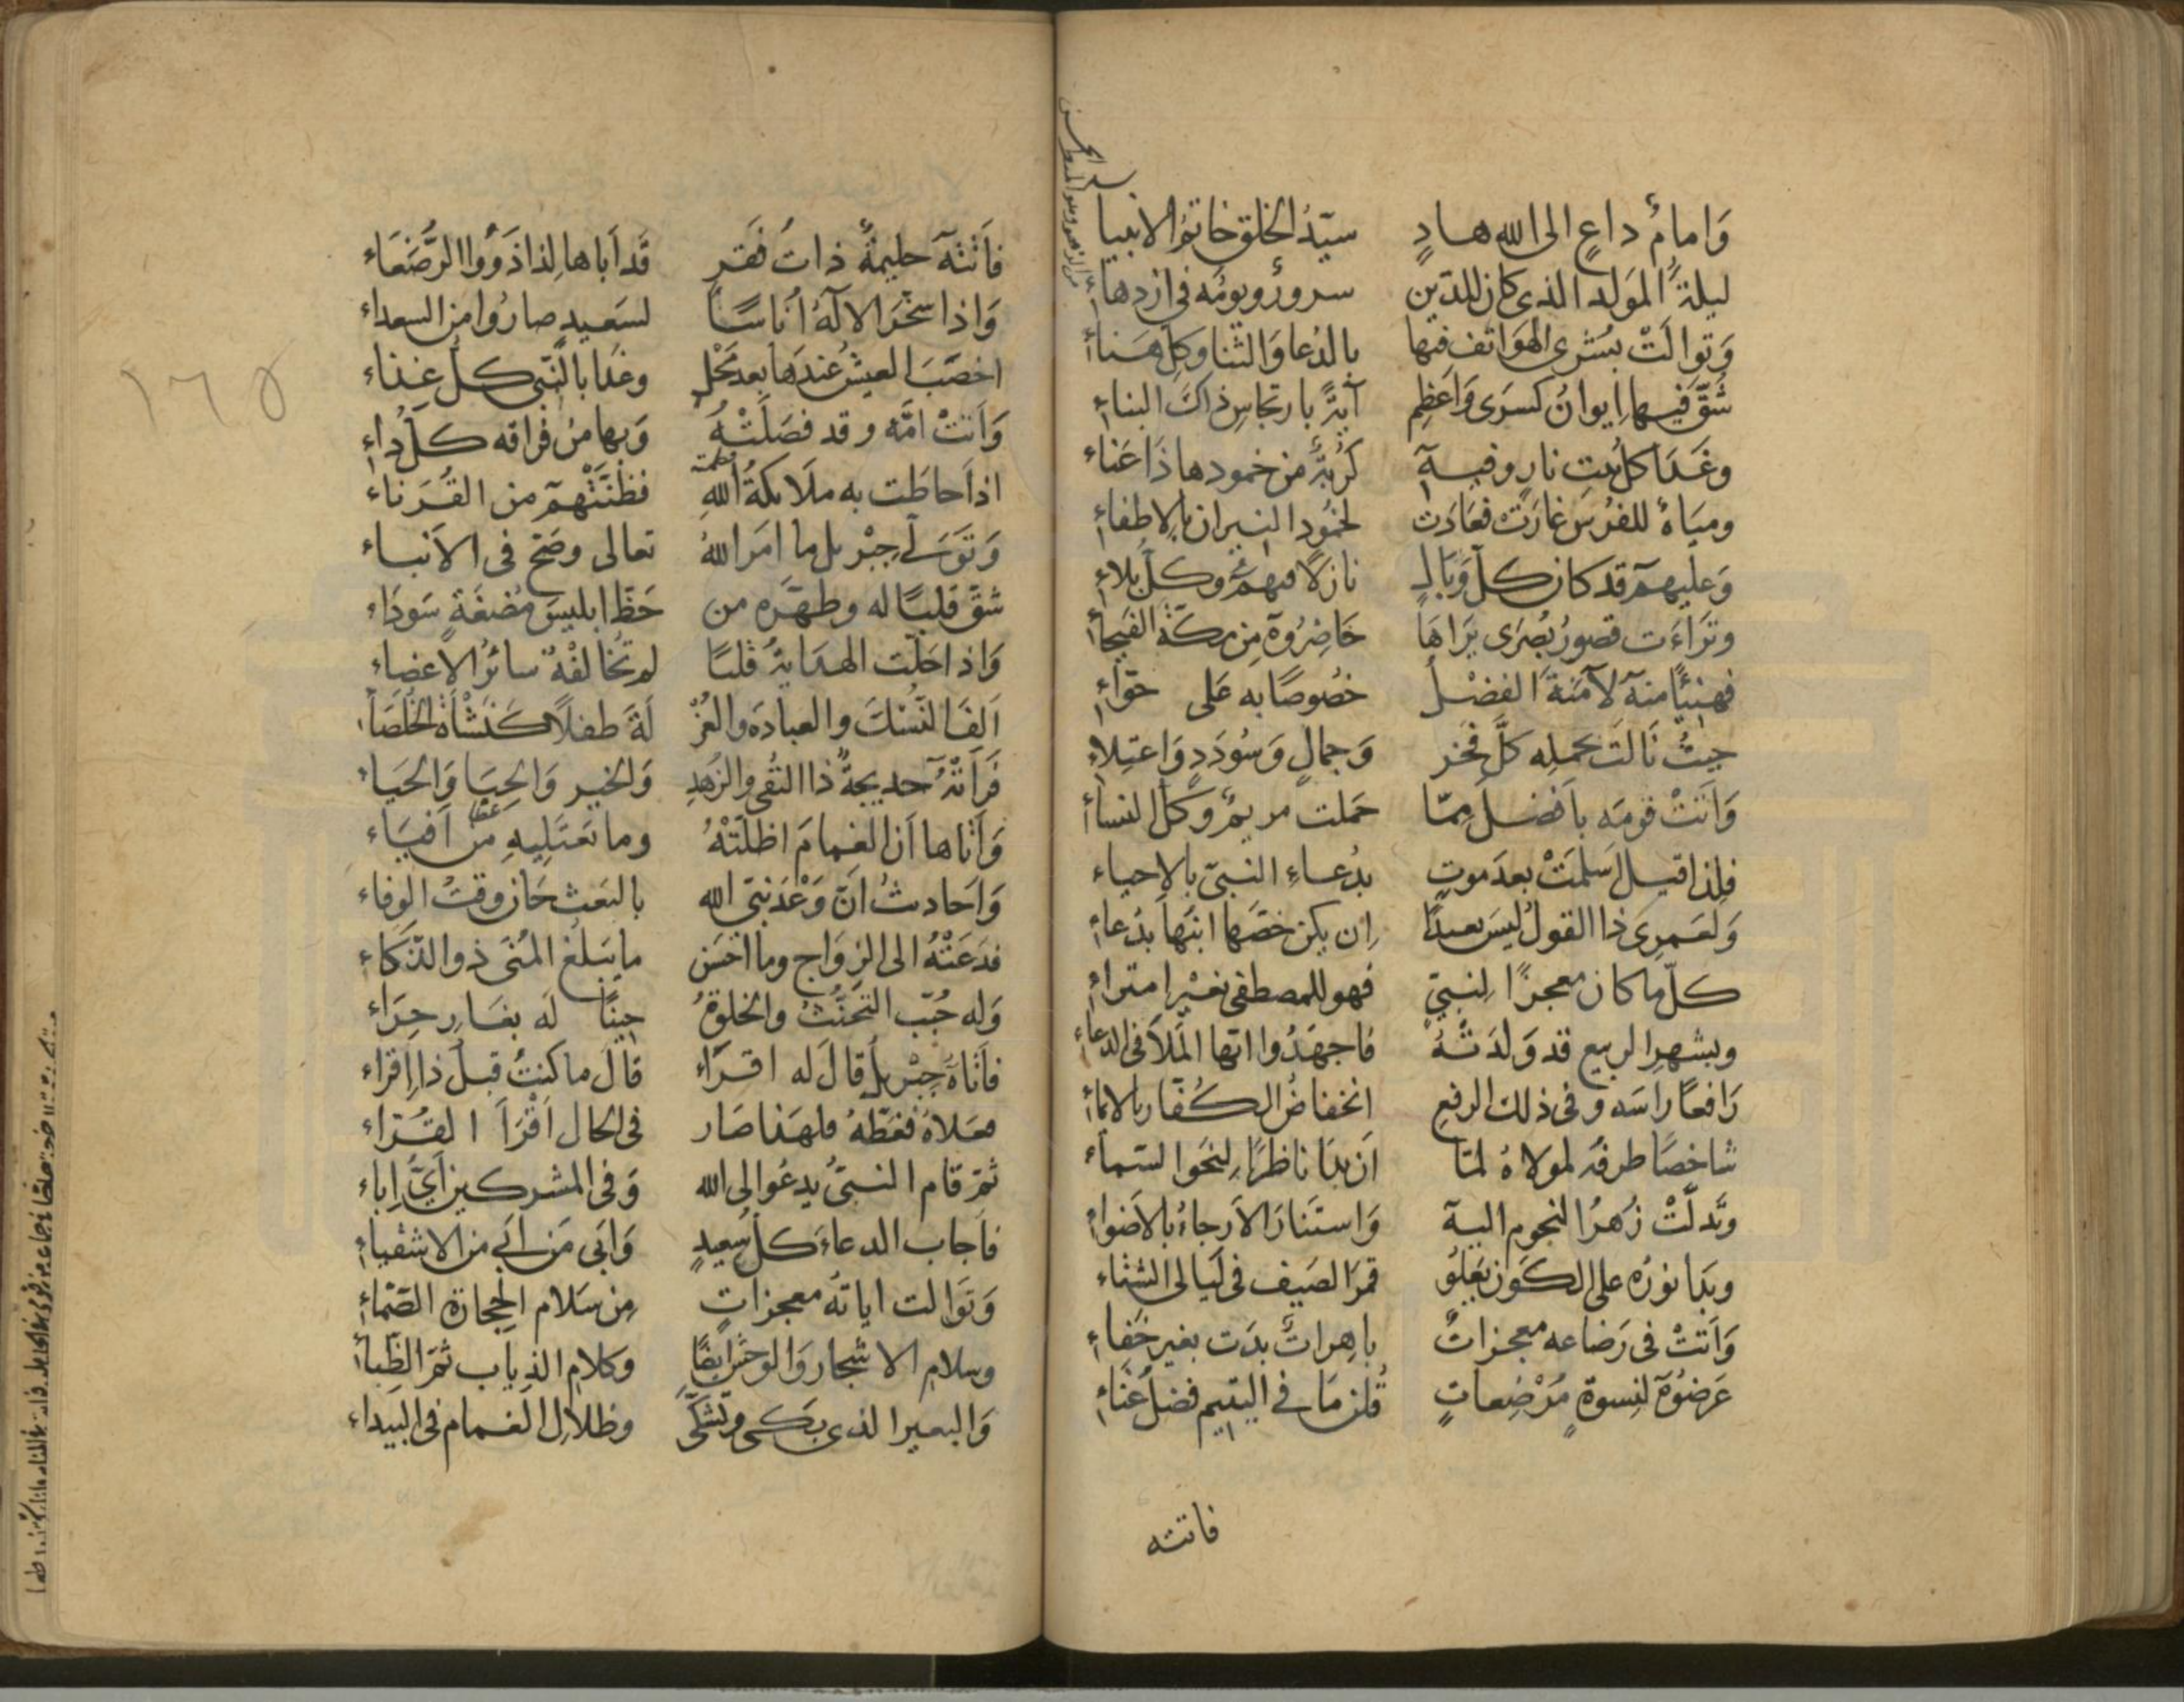 وَامامٌ داعٍ الى الله هادٍ سيّدُ الخلق خاتمُ الانبيا
ليلةُ المَولد الذى كان للدّين سرورٌ ويومُه فى ازدهاءِ
وَتوالَتْ بُشرى الهَوَاتف فيها بالدُعا وَالثنا وكلِ هَناءِ
شُقّ فيها ايوانُ كسرَى وَاَعظِم آيةً بارتجاسِ ذاكَ البناءِ
وغَدَا كلُ بيتِ نارٍ وفيه كُربةٌ من خمودها ذَا عَناء
ومياهٌ للفُرسِ غارَتْ فعَادَتْ لخمُود النيران بالاِطفاءِ
وَعليهم قد كان كلُ وَبَالٍ نازلاً فيهمُ وكلُّ بلاءِ
وتَراءَت قصورُ بُصرَى يَرَاهَا حَاضِرُوهُ مِن مكّةَ الفَيحاءِ
فهنيئًا منه لآمنةَ الفضْل خصُوصًا به عَلى حوّاءِ
حيثُ نالَت بحمله كلَّ فخرٍ وَجمالٍ وَسُودَدٍ وَاعتِلاءِ
وَاَتَتْ قومَه بافضل ممّا حَملت مريمٌ وَكلُ النساءِ
فلِذا قيل اَسلمَتْ بعدَ موتٍ بدُعاءِ النبىّ بالاحياء
وَلعَمرِى ذا القولُ ليسَ بعيدًا اِن يكن خصّهَا ابنُها بدُعاءِ
كلُّ ما كان معجزًا لِنبىٍّ فهو للمصطفى بغير امتراءِ
وبشهرِ الربيع قد وَلدَتْهُ فاجهَدُوا ايها المَلاَ فى الدعاءِ
رَافعًا راسَه وفى ذلك الرفعِ انخفاضُ الكُفّار بالانماءِ
شاخصًا طرفُه لمولاهُ لمّا اَن بدَا ناظرًا لِنحَو السّماءِ
وتَدلّتْ زُهرُ النجوم اليه وَاستَنارَ الاَرجاءُ بالاَضواءِ
وبدَا نورُه على الكَون يَعلُو قمرَ الصَيف فى لَيالى الشتاءِ
وَاَتتْ فى رَضاعه معجزاتٌ باهراتٌ بدَت بغير خَفاءِ
عَرضُوهُ لنِسوةٍ مُرْضِعاتٍ قُلن مَا فى اليتيم فضلُ غنَاءِ
فاتته
فاَتَتهُ حليمةٌ ذاتُ فَقرٍ قد اَباها لِذا ذَوُوا الرُّضَعَاء
وَاذا سخّرَ الالهُ اُناسًا لسَعيدٍ صارُوا من السعداءِ
اخصَبَ العيشُ عندَها بعد مَحْلٍ وغدَا بالنّبى كلُّ غِذاء
وَاَتتْ امَّه وقد فصَلَتْهُ وَبها من فراقه كلُّ داءِ
اذ اَحاطَت به ملَائكةُ اللهِ فظنّتْهم من القُرَناء
وَتَوَلّى جِبْريل ما امَر اللهُ تعالى وصَحَّ فى الاَنباء
شقّ قلبًا له وطهّره من حَظّ ابليسَ مُضغَةٍ سَودَاءِ
وَاذا حَلّت الهدَايةُ قلبًا لم تخُالفْهُ سائرُ الاعضاءِ
اَلِفَ النُسْكَ والعبادَه والعُزْ لَةَ طفلاً كَنَشْأةُ الخُلَصَاءِ
فَرَاَتْهُ خديجةٌ ذا التُقى والزُهدِ وَالخيرِ وَالحِبَا وَالحَيَاءِ
وَاَتاها اَن الغمامَ اظلّتْهُ وما تَعتَليهِ من اَفيَاءِ
وَاَحاديثُ اَنّ وَعْدَ نبىّ الله بالبَعث حَان وقتُ الوفاء
فدَعَتْهُ الى الزِوَاج وما احسَن ما يَبلُغ المُنَى ذو الذّكاءِ
وَله حُبّب التَّحنُّثُ والخلوةُ حينًا لَه بغَارِ حِرَاءِ
فاَتاهُ جِبْريلُ قالَ له اقراءْ قالَ ما كنتُ قبلُ ذا اِقراء
فعَلاهُ فغطّهُ فلهَذا صَار فى الحال اَقْرَأَ القُرّاءِ
ثمّ قام النبىُّ يدعُو الى الله وَفى المشركين اَىُّ اِباء
فاَجابَ الدعاءَ كلُ سَعيدٍ وَابَى مَن اَبَى من الاشقياءِ
وَتَوَالت اياتُه معجزاتٍ مِن سَلام الحِجارة الصّمّاءِ
وسلامِ الاشجار وَالوحش ايضًا وكلامِ الذِياب ثمّ الظِباءِ
وَالبعير الذى بَكى وتشَكّى وظلالِ الغمام فى البَيداءِ
١٦٥